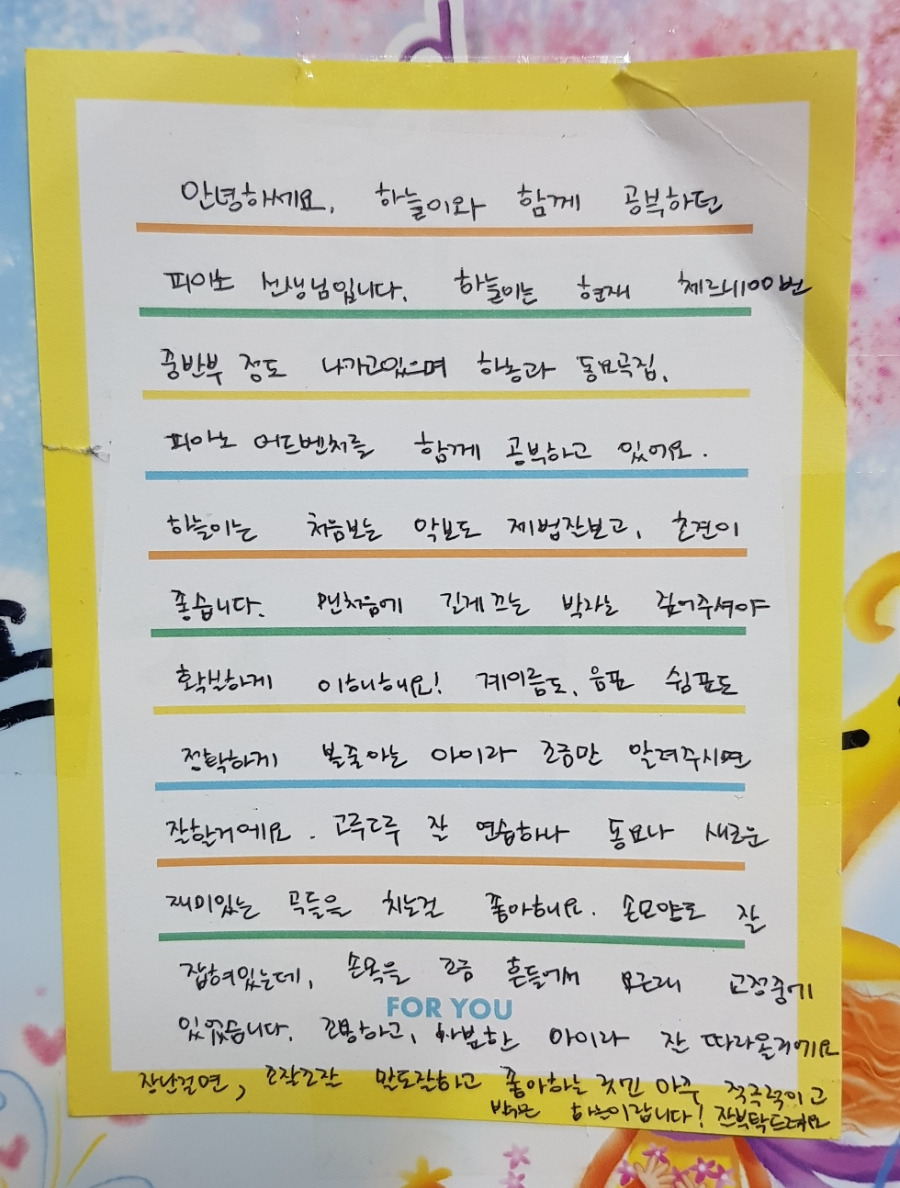 안녕하세요, 하늘이와 함께 공부하던
피아노 선생님입니다. 하늘이는 현재 체르니100번
중반부 정도 나가고있으며 하농과 동요곡집,
피아노 어드벤처를 함께 공부하고 있어요.
하늘이는 처음보는 악보도 제법잘보고, 초견이
좋습니다. 맨처음에 길게끄는 박자는 짚어주셔야
확실하게 이해해요! 계이름도, 음표 쉼표도
정확하게 볼줄아는 아이라 조금만 알려주시면
잘할거예요. 고루고루 잘 연습하나 동요나 새로운
재미있는 곡들을 치는걸 좋아해요. 손모양도 잘
잡혀있는데, 손목을 조금 흔들어서 요근래 교정중에
FOR YOU
있었습니다. 하고, 차분한 아이라 잘 따라올거예요
장난걸면, 조잘조잘 말도잘하고 좋아하는 아주 적극적이고
밝은 하늘이랍니다! 잘부탁드려요